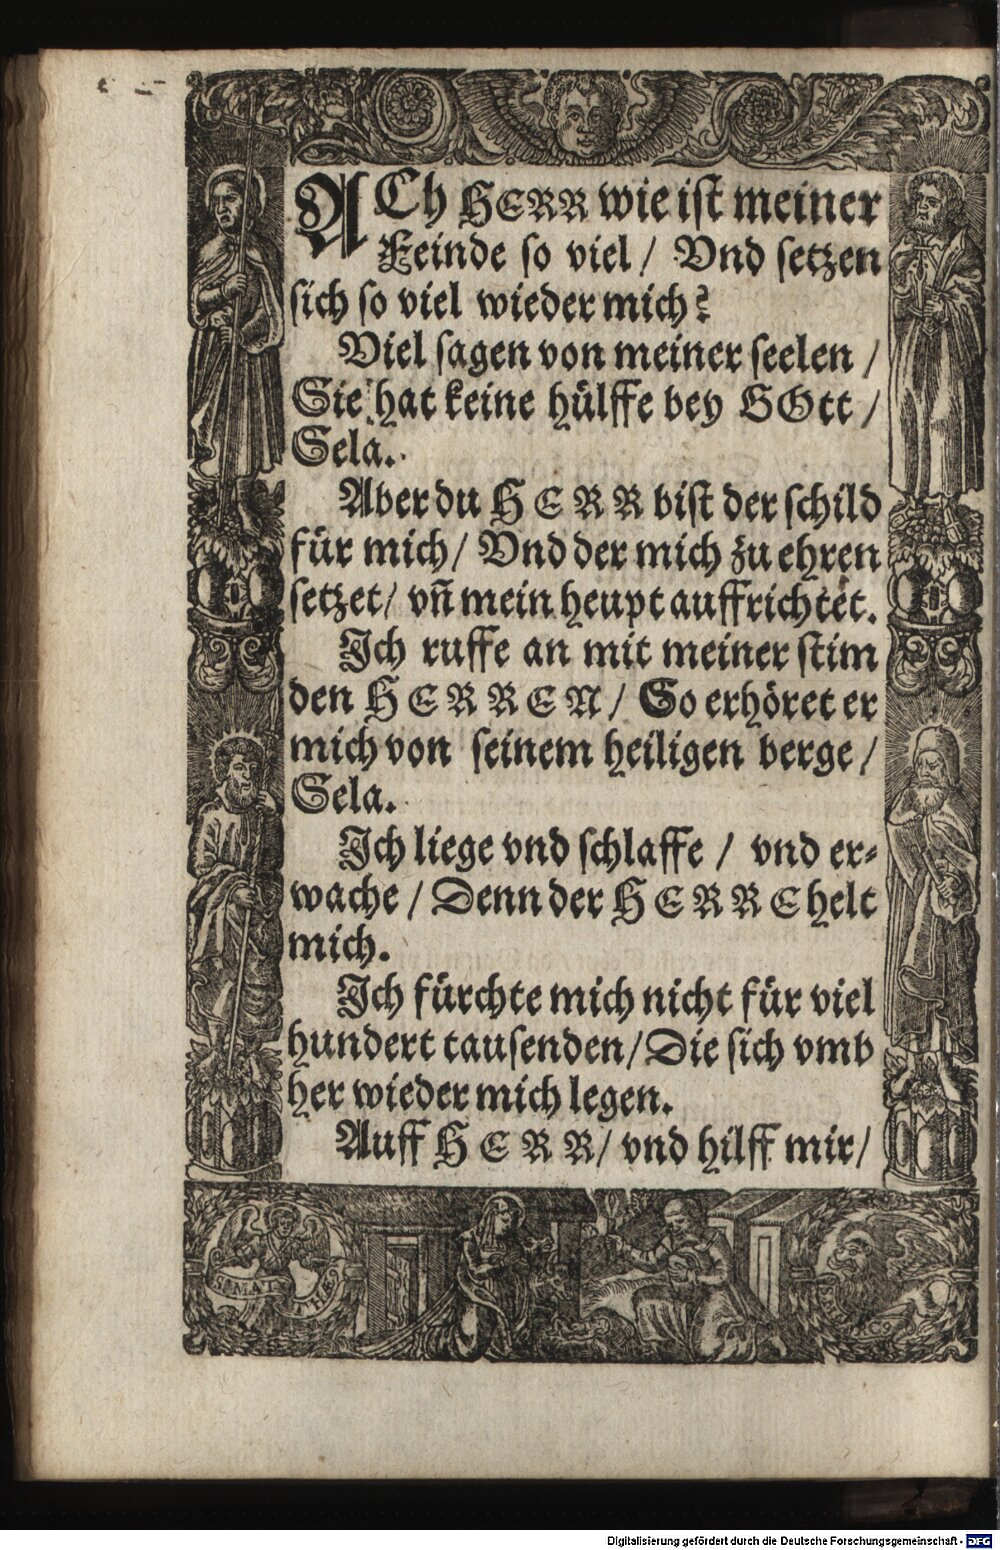 ACh HERR wie ist meiner
Feinde so viel / Vnd setzen
sich so viel wieder mich?
Viel sagen von meiner seelen /
Sie hat keine hülffe bey GOtt /
Sela.
Aber du HERR bist der schild
für mich / Vnd der mich zu ehren
setzet / vñ mein heupt auffrichtet.
Ich ruffe an mit meiner stim
den HERREN / So erhöret er
mich von seinem heiligen berge /
Sela.
Ich liege vnd schlaffe / vnd er-
wache / Denn der HERRE helt
mich.
Ich fürchte mich nicht für viel
hundert tausenden / Die sich vmb
her wieder mich legen.
Auff HERR / vnd hilff mir /
S. MAT THÆ
Digitalisierung gefördert durch die Deutsche Forschungsgemeinschaft - DFG